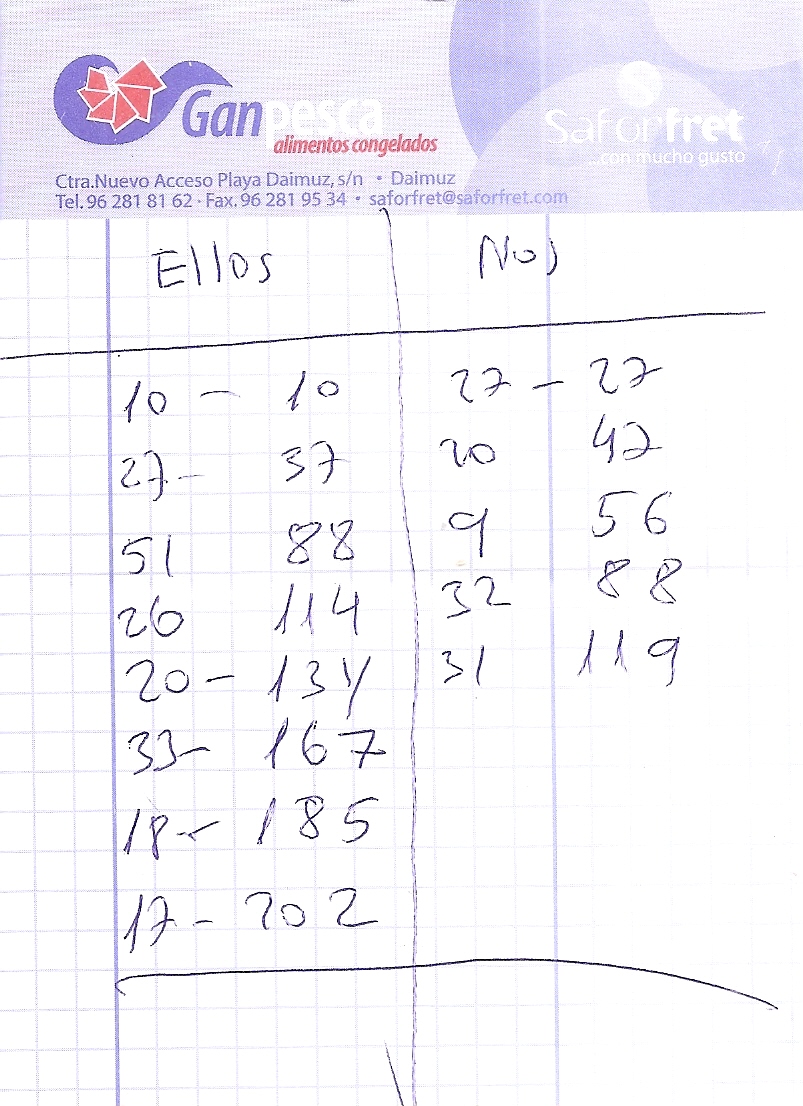 Ganpesca
alimentos congelados
Saforfret
...con mucho gusto
Ctra.Nuevo Acceso Playa Daimuz, s/n • Daimuz
Tel. 96 281 81 62 · Fax. 96 281 95 34 • saforfret@saforfret.com
Ellos Nos
10 - 10 27 - 27
27 - 37 20 47
51 88 9 56
26 114 32 88
20 - 134 31 119
33 - 167
18 - 185
17 - 202